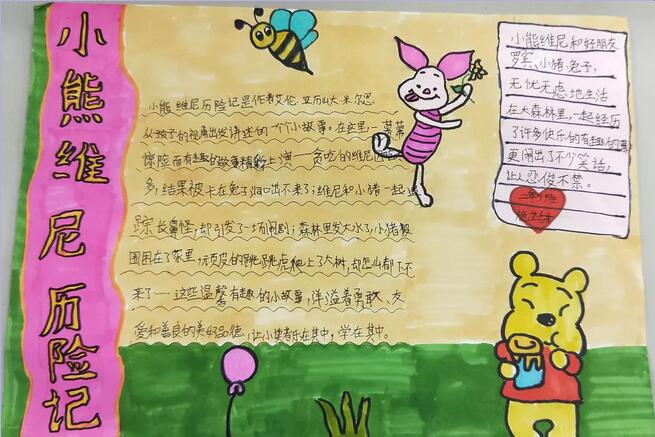 小熊維尼历险记
小熊维尼历险记是作者艾伦·亚历山大·米尔恩
从孩子的视角出发讲述的一个个小故事。在这里一幕幕
惊险而有趣的故事精彩上演——贪吃的维尼因吃太
多,结果被卡在兔子洞口出不来了;维尼和小猪一起追
踪长鼻怪,却引发了一场闹剧;森林里发大水了,小猪被
围困在了家里,顽皮的跳跳虎爬上了大树,却怎么都下不
来了……这些温馨有趣的小故事,洋溢着勇敢、友
爱和善良的美好品德,让小读者乐在其中,学在其中。
小熊维尼和好朋友
罗宾、小猪、兔子,
无忧无虑地生活
在大森林里,一起经历
了许多快乐的有趣的事
更闹出了不少笑话,
让人忍俊不禁。